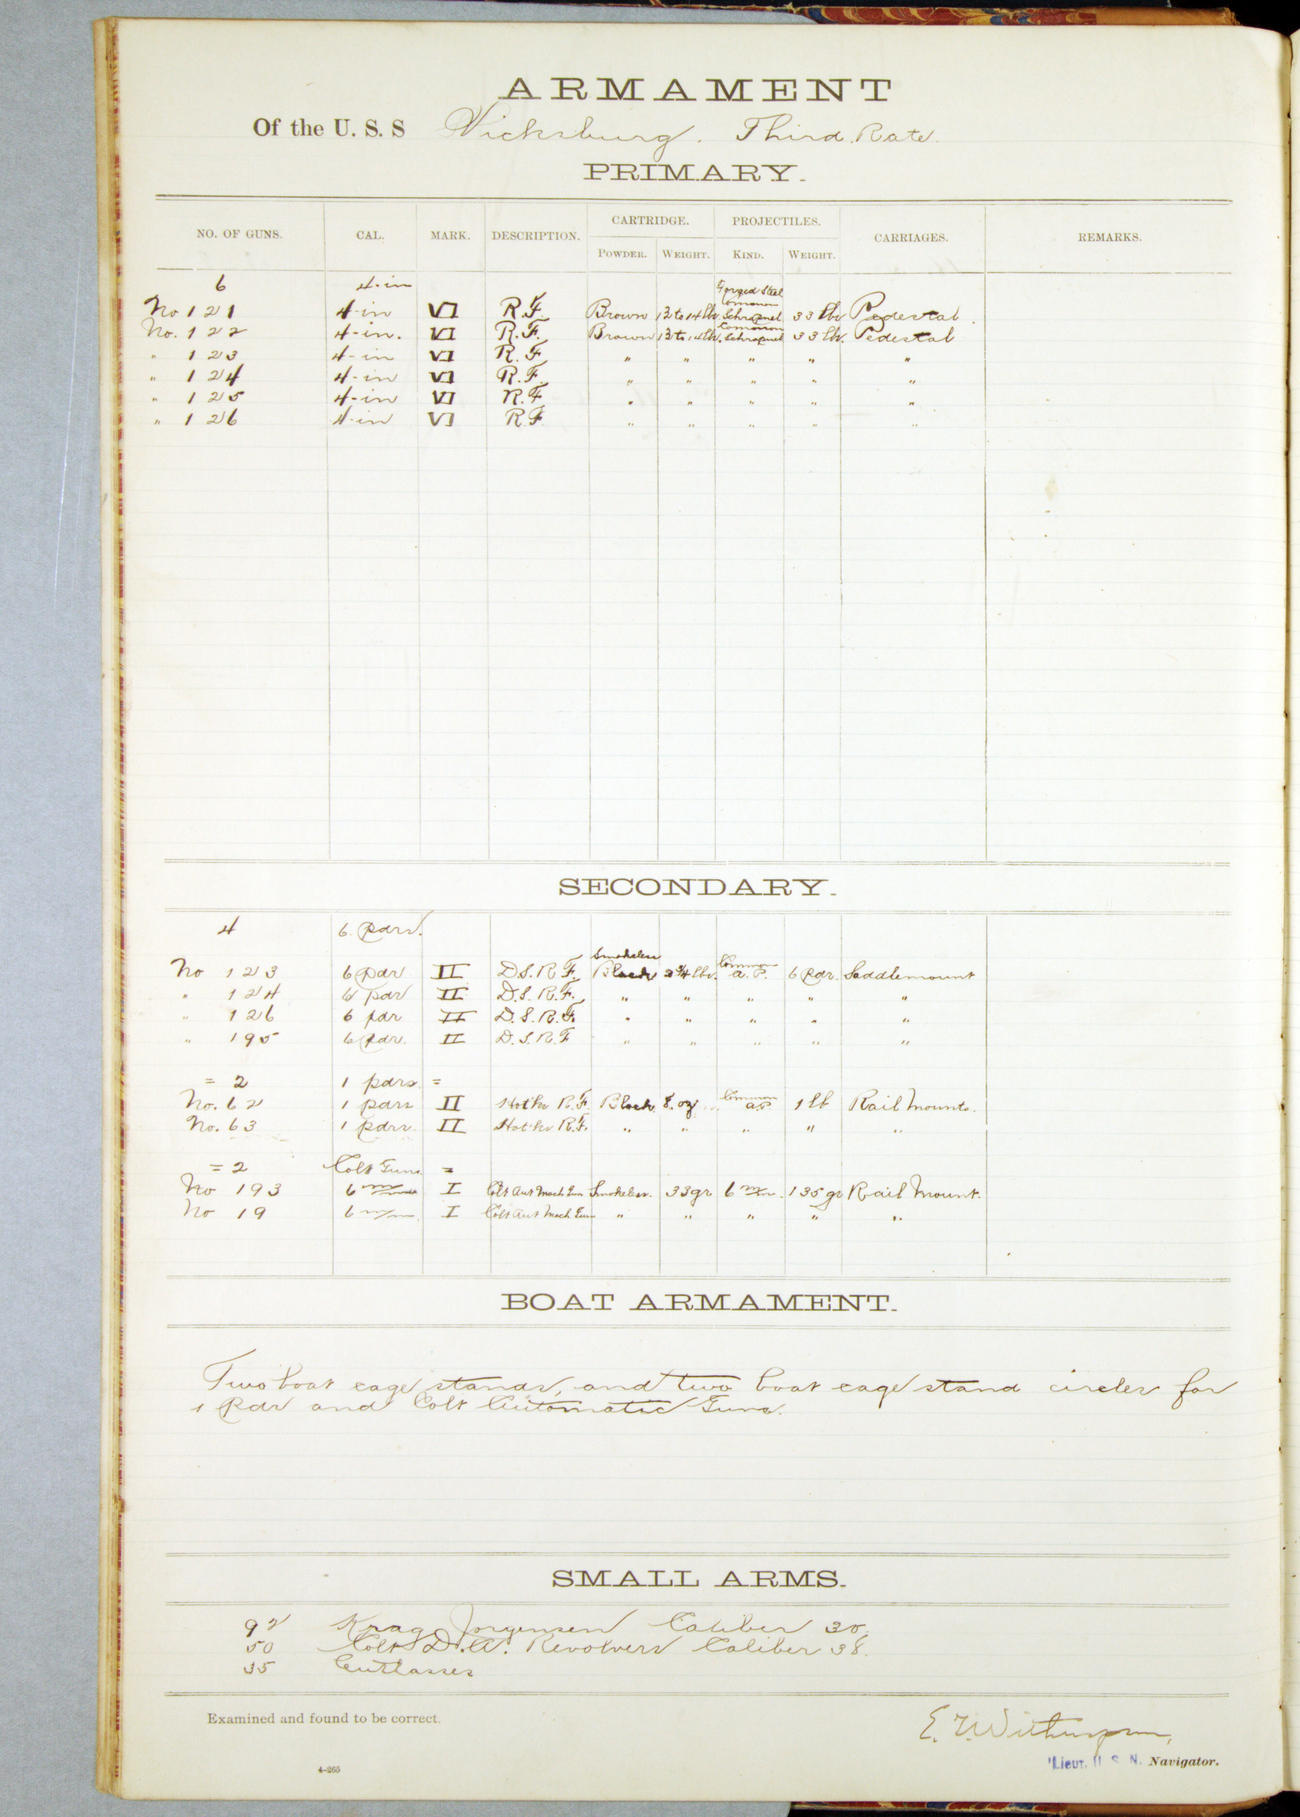 ARMAMENT
Of the U. S. S Vicksburg. Third Rate.
PRIMARY.
NO. OF GUNS. CAL. MARK. DESCRIPTION. CARTRIDGE. PROJECTILES. CARRIAGES. REMARKS.
POWDER. WEIGHT. KIND. WEIGHT.
6 4-in
Forged Steel
Common
No 121 4-in VI R.F. Brown 13 to 14 lb Schrapnel 33 lb Pedestal.
Common
No. 122 4-in. VI R.F. Brown 13 to 14 lb. Schrapnel 33 lb. Pedestal
" 123 4-in VI R.F. " " " " "
" 124 4-in VI R.F. " " " " "
" 125 4-in VI R.F. " " " " "
" 126 4-in VI R.F. " " " " "
SECONDARY.
4 6. pdrs.
Smokeless Common
No 123 6 pdr II D.S.R.F. Black 3/4 lbs. A.P. 6 pdr. Saddlemount
" 124 6 pdr II D.S.R.F. " " " " "
" 126 6 pdr II D.S.R.F. " " " " "
" 195 6 pdr. II D.S.R.F " " " " "
= 2 1 pdrs =
Common
No. 62 1 pdrs II Hotks R.F. Black 8. oz A.P. 1 lb Rail Mounts.
No. 63 1 pdrs. II Hotks R.F. " " " " "
= 2 Colt Guns =
No 193 6 m/m I Colt Aut Mach Gun Smokeless. 33 gr 6 m/m. 135 gr Rail Mount.
No 19 6 m/m I Colt Aut Mach Gun " " " " "
BOAT ARMAMENT.
Two boat cage stands, and two boat cage stand circles for
1 Pdr and Colt Automatic Guns.
SMALL ARMS.
92 Kraag Jorgensen Caliber 30.
50 Colt D.A. Revolvers Caliber 38.
35 Cutlasses
Examined and found to be correct.
E. T. Witherspoon,
Lieut. U. S. N. Navigator.
4-265